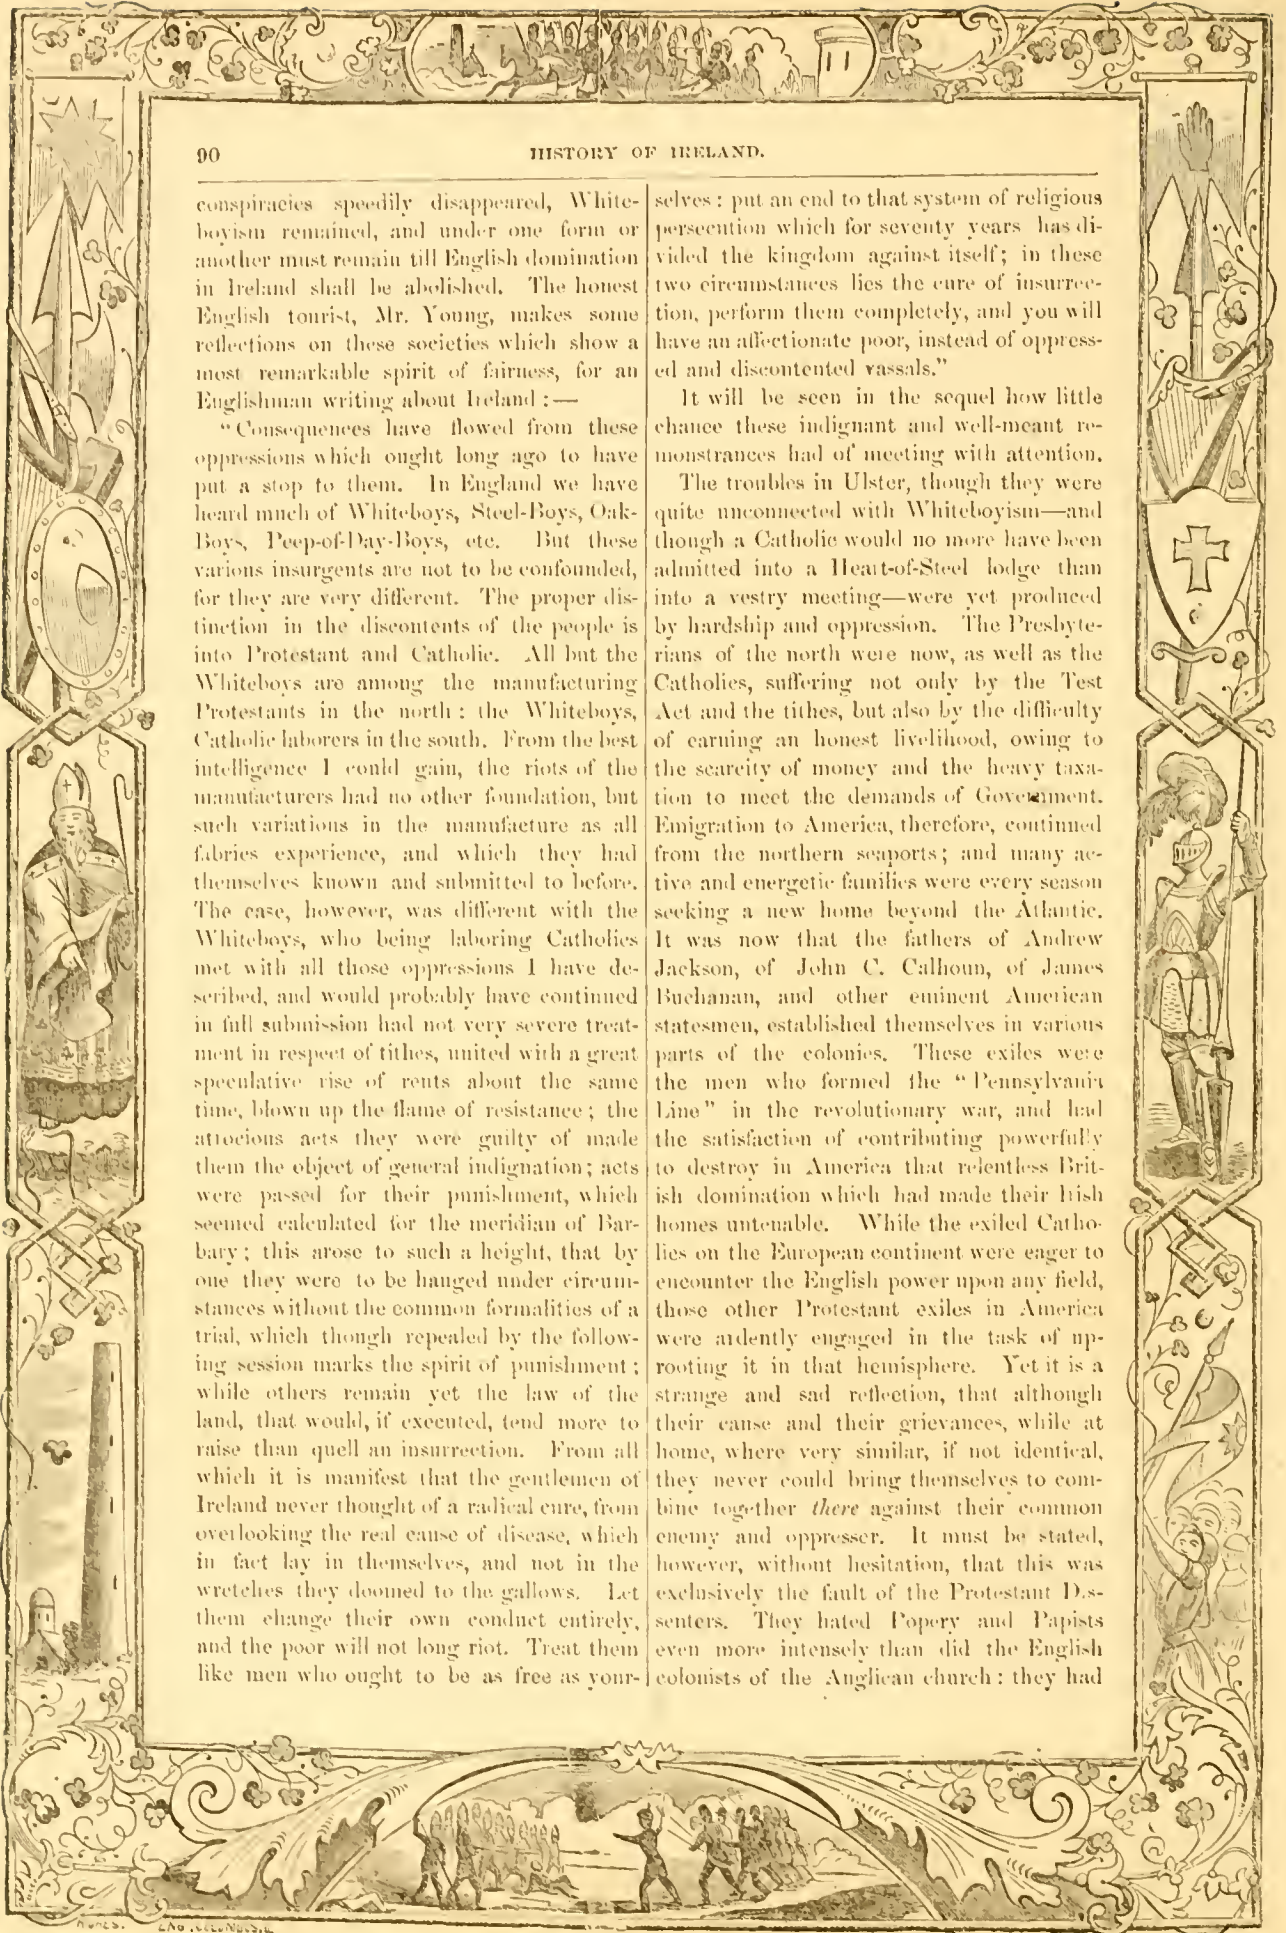 90
HISTORY OF IRELAND.
conspiracies speedily disappeared, White-
boyism remained, and under one form or
another must remain till English domination
in Ireland shall be abolished. The honest
English tourist, Mr. Young, makes some
reflections on these societies which show a
most remarkable spirit of fairness, for an
Englishman writing about Ireland :—
"Consequences have flowed from these
oppressions which ought long ago to have
put a stop to them. In England we have
heard much of Whiteboys, Steel-Boys, Oak-
Boys, Peep-of-Day-Boys, etc. But these
various insurgents are not to be confounded,
for they are very different. The proper dis-
tinction in the discontents of the people is
into Protestant and Catholic. All but the
Whiteboys are among the manufacturing
Protestants in the north : the Whiteboys,
Catholic laborers in the south. From the best
intelligence I could gain, the riots of the
manufacturers had no other foundation, but
such variations in the manufacture as all
fabrics experience, and which they had
themselves known and submitted to before.
The case, however, was different with the
Whiteboys, who being laboring Catholics
met with all those oppressions I have de-
scribed, and would probably have continued
in full submission had not very severe treat-
ment in respect of tithes, united with a great
speculative rise of rents about the same
time, blown up the flame of resistance ; the
atrocious acts they were guilty of made
them the object of general indignation ; acts
were passed for their punishment, which
seemed calculated for the meridian of Bar-
bary ; this arose to such a height, that by
one they were to be hanged under circum-
stances without the common formalities of a
trial, which though repealed by the follow-
ing session marks the spirit of punishment ;
while others remain yet the law of the
land, that would, if executed, tend more to
raise than quell an insurrection. From all
which it is manifest that the gentlemen of
Ireland never thought of a radical cure, from
overlooking the real cause of disease, which
in fact lay in themselves, and not in the
wretches they doomed to the gallows. Let
them change their own conduct entirely,
and the poor will not long riot. Treat them
like men who ought to be as free as your-
selves : put an end to that system of religious
persecution which for seventy years has di-
vided the kingdom against itself ; in these
two circumstances lies the cure of insurrec-
tion, perform them completely, and you will
have an affectionate poor, instead of oppress-
ed and discontented vassals."
It will be seen in the sequel how little
chance these indignant and well-meant re-
monstrances had of meeting with attention.
The troubles in Ulster, though they were
quite unconnected with Whiteboyism—and
though a Catholic would no more have been
admitted into a Heart-of-Steel lodge than
into a vestry meeting—were yet produced
by hardship and oppression. The Presbyte-
rians of the north were now, as well as the
Catholics, suffering not only by the Test
Act and the tithes, but also by the difficulty
of earning an honest livelihood, owing to
the scarcity of money and the heavy taxa-
tion to meet the demands of Government.
Emigration to America, therefore, continued
from the northern seaports ; and many ac-
tive and energetic families were every season
seeking a new home beyond the Atlantic.
It was now that the fathers of Andrew
Jackson, of John C. Calhoun, of James
Buchanan, and other eminent American
statesmen, established themselves in various
parts of the colonies. These exiles were
the men who formed the "Pennsylvania
Line" in the revolutionary war, and had
the satisfaction of contributing powerfully
to destroy in America that relentless Brit-
ish domination which had made their Irish
homes untenable. While the exiled Catho-
lics on the European continent were eager to
encounter the English power upon any field,
those other Protestant exiles in America
were ardently engaged in the task of up-
rooting it in that hemisphere. Yet it is a
strange and sad reflection, that although
their cause and their grievances, while at
home, where very similar, if not identical,
they never could bring themselves to com-
bine together there against their common
enemy and oppresser. It must be stated,
however, without hesitation, that this was
exclusively the fault of the Protestant Dis-
senters. They hated Popery and Papists
even more intensely than did the English
colonists of the Anglican church : they had